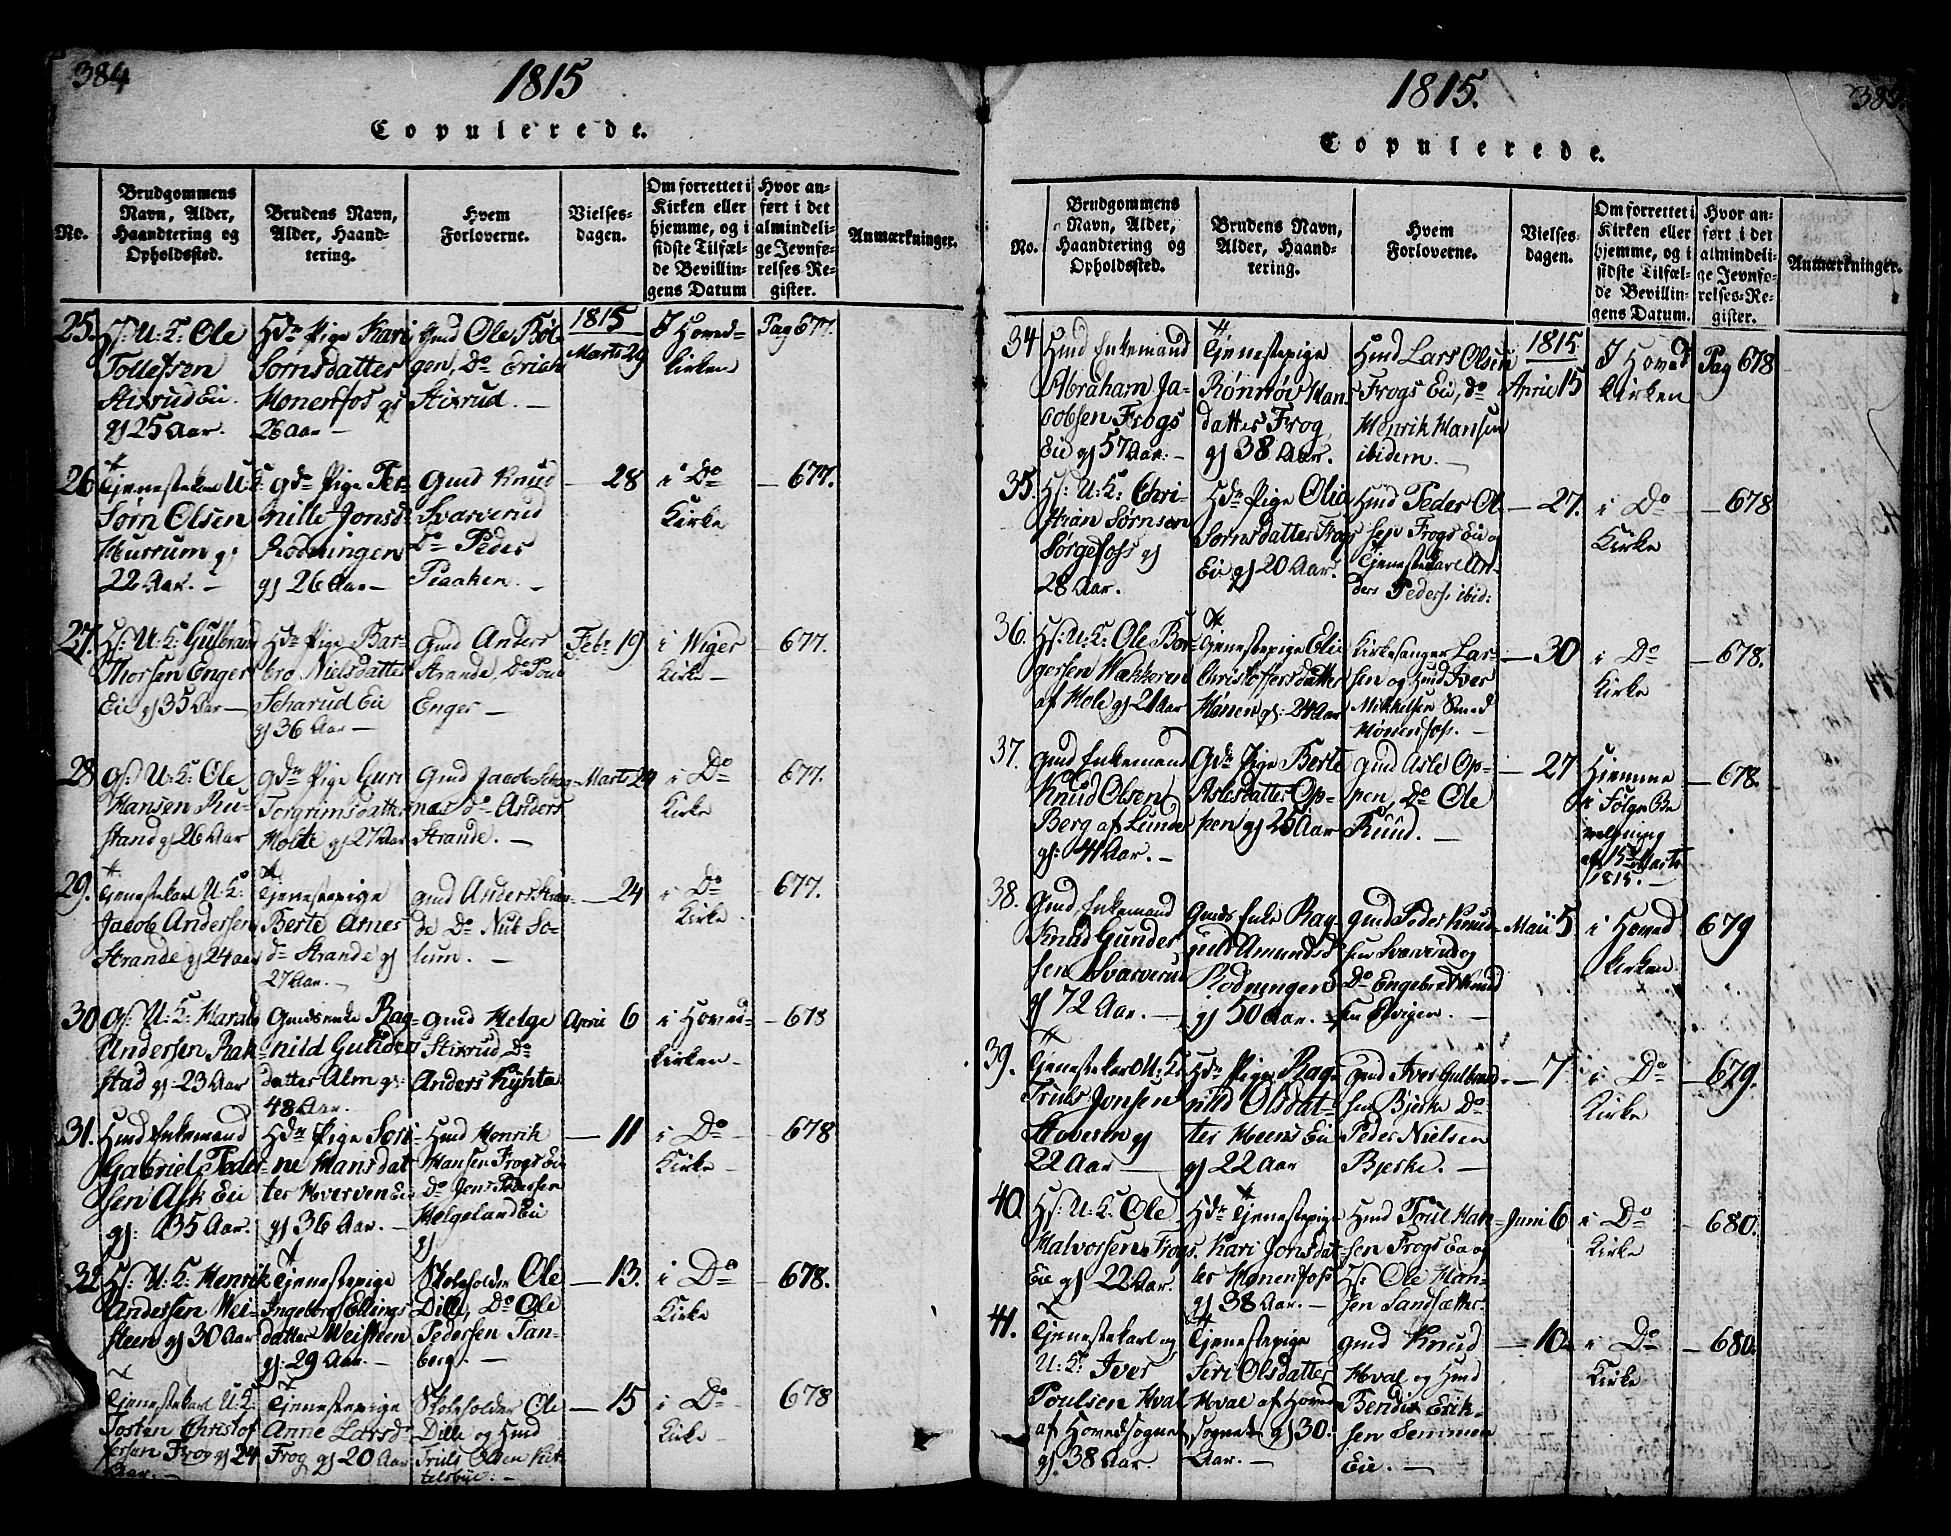 384
1815
Copulerede.
No.
Brudgommens
Navn, Alder,
Haandtering og
Opholdssted.
Brudens Navn,
Alder, Haand-
tering.
Hvem
Forloverne.
Vielses-
dagen.
Om forrettet i
Kirken eller
hjemme, og i
sidste Tilfæl-
de Bevillin-
gens Datum
Hvor an-
ført i det
almindeli-
ge Jevnfø-
relses-Re-
gister.
Anmærkninger.
25.
Hs: U: K: Ole
Tollefsen
Stixrud Eie.
gl 25 Aar.
Hds Pige Kari
Sørnsdatter
Hønenfos gl
26 Aar —
Gmd Ole Bøl-
gen, Do Erich
Stixrud. —
1815
Marts 29
I Hoved-
kirken
Pag 677.
26
Tjenestekarl U: K:
Sørn Olsen
Hurrum gl
22 Aar. —
Gds Pige Per-
nille Jonsd
Rødningen
gl 26 Aar —
Gmd Knud
Svarverud
Do Peder
Piaaken. —
— 28
i Do
Kirke
— 677.
27.
Hs: U: K: Gulbrand
Thorsen Enger
Eie gl 35 Aar —
Hds Pige Bar-
bro Nielsdatter
Scharud Eie
gl 36 Aar —
Gmd Anders
Strande, Do Poul
Enger —
Febr 19
i Wiger
Kirke —
— 677.
28
Gs: U: K: Ole
Hansen Ru-
stand gl 26 Aar
Gds Pige Guri
Torgrimsdatter
Holte gl 27 Aar
Gmd Jacob
Do Anders
Strande. —
Marts 24
i Do
Kirke
677.
29.
Tjenestekarl U: K:
Jacob Andersen
Strande gl 24 aar
Tjenestepige
Berte Arnes
d— Strande gl
27 Aar. —
Gmd Anders Stran-
de Do Nub So-
lum. —
— 24
i Do
Kirke
— 677.
30
Gs: U: K: Harald
Andersen Rak-
stad gl 23 Aar
Gmdsenke Rag-
nild Gunders
datter Alm gl:
48 Aar.
Gmd Helge
Stixrud, Do
Anders Kihte
April 6
i Hoved-
kirken
— 678
31.
Hmd Enkemand
Gabriel Peder-
sen Ask Eie
gl: 35 Aar.
Hds Pige Sori-
ne Hansdat
ter Hverven Eie
gl 36 Aar. —
Hmd Henrik
Hansen Frogs Eie
Do Jens Pedersen
Helgeland Eie
— 11
i Do
Kirke
— 678
32
Hs: U: K: Henrik
Andersen Wei-
steen gl 30 Aar
Tjenestepige
Ingeborg Ellings
datter Weisteen
gl: 29 Aar. —
Skoleholder Ole
Dille, Do Ole
Pedersen Tan-
berg. —
— 13.
i Do
Kirke
— 678.
Tjenestekarl U: K:
Tosten Christof
fersen Frog gl 24
Aar. —
Tjenestepige
Anne Larsd
Frog gl 20 Aar
Skoleholder Ole
Dille og Hmd
Truls Olsen Kit-
telsbye. —
— 15
i Do
Kirke
678
1815.
Copulerede.
No.
Brudgommens
Navn, Alder,
Haandtering og
Opholdssted.
Brudens Navn,
Alder, Haand-
tering.
Hvem
Forloverne.
Vielses-
dagen.
Om forrettet i
Kirken eller
hjemme, og i
sidste Tilfæl-
de Bevillin-
gens Datum.
Hvor an-
ført i det
almindeli-
ge Jevnfø-
relses-Re-
gister.
Anmærkninger.
34
Hmd Enkemand
Abraham Ja-
cobsen Frogs
Eie gl 57 Aar. —
Tjenestepige
Rønnøv Hans
datter Frog
gl 38 Aar.
Hmd Lars Olsen
Frogs Eie, Do
Henrik Hansen
ibidem. —
1815
April 15
I Hoved
kirken
Pag 678
35.
Hs: U: K: Chri-
stian Sørnsen
Sørgefoss gl
28 Aar.
Hds Pige Olia
Sørnsdatter Frogs
Eie gl 20 Aar.
Hmd Peder Ol
sen Frogs Eie og
Tjenestekarl An-
ders Peders. ibid:
— 27.
i Do
Kirke
— 678
36.
Hs: U: K: Ole Bør-
gersen Wækkeren
af Hole gl 21 Aar
Tjenestepige Elie
Christoffersdatter
Hønen gl: 24 Aar
Kirkesanger Lar-
sen og Hmd Iver
Mikkelsen Smed
Hønenfoss. —
— 30
i Do
Kirke
— 678.
37.
Gmd Enkemand
Knud Olsen
Berg af Lunder
gl: 41 Aar. —
Gds Pige Berte
Aslesdatter Op-
pen gl 25 Aar
Gmd Asle Op-
pen, Do Ole
Ruud. —
— 27
Hjemme
i Følge Be
vilgning
af 15 Marts
1815. —
— 678.
38.
Gmd Enkemand
Knud Gunder
sen Svarverud
gl 72 Aar. —
Gmds Enke Rag
nild Amundsd
Rødningen
gl 50 Aar. —
Gmd Peder Knud-
sen Svarverud og
Do Engebret Knud
sen Elvigen. —
Maii 5
i Hoved
kirken
679
39.
Tjenestekarl U: K:
Truls Jonsen
Hoveren gl
22 Aar —
Hds Pige Rag-
nild Olsdat-
ter Heens Eie
gl 22 Aar
Gmd Iver Gulbrand-
sen Bjerke Do
Peder Nielsen
Bjerke. —
— 7
i Do
Kirke
— 679.
40.
Hs: U: K: Ole
Halvorsen Frogs
Eie gl 22 Aar.
Hds Tjenestepige
Kari Jonsdat-
ter Hønenfoss
gl 38 Aar. —
Hmd Poul Han-
sen Frogs Eie og
Hs: Ole Han-
sen Sandsætter.
Juni 6
i Do
Kirke
— 680.
41.
Tjenestekarl og
U: K: Iver
Poulsen Hval
af Hovedsognet
gl 38 Aar
Tjenestepige
Siri Olsdatter
Hval af Hoved
sognet gl 30.
Aar. —
Gmd Knud
Hval og Hmd
Bendix Erik-
sen Semmen
Eie. —
— 10.
i Do
Kirke
— 680.